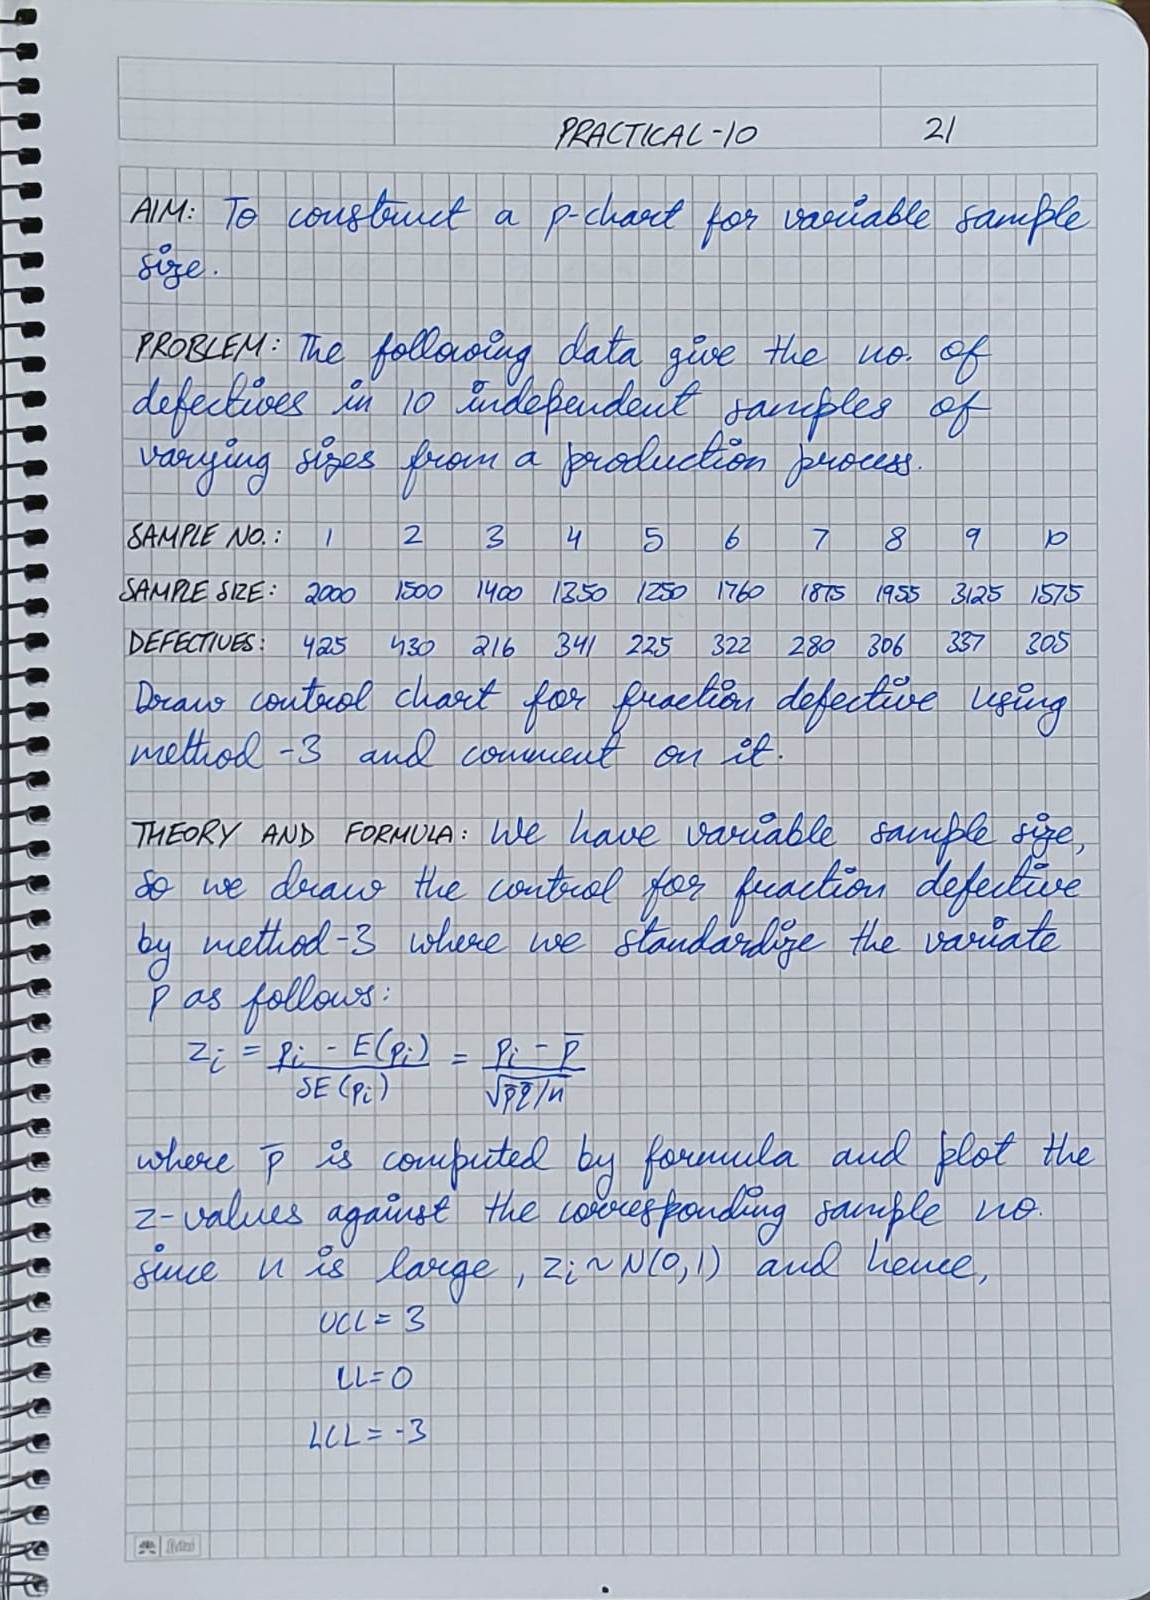 PRACTICAL-10 21
AIM: To construct a p-chart for variable sample
size.
PROBLEM: The following data give the no. of
defectives in 10 independent samples of
varying sizes from a production process.
SAMPLE NO.: 1 2 3 4 5 6 7 8 9 10
SAMPLE SIZE: 2000 1500 1400 1350 1250 1760 1875 1955 3125 1575
DEFECTIVES: 425 430 216 341 225 322 280 306 337 305
Draw control chart for fraction defective using
method-3 and comment on it.
THEORY AND FORMULA: We have variable sample size,
so we draw the control for fraction defective
by method-3 where we standardize the variate
P as follows:
zᵢ = pᵢ - E(pᵢ) / SE(pᵢ) = pᵢ - p̄ / √p̄q̄/n
where p̄ is computed by formula and plot the
z-values against the corresponding sample no.
since n is large, zᵢ ~ N(0,1) and hence,
UCL = 3
CL = 0
LCL = -3